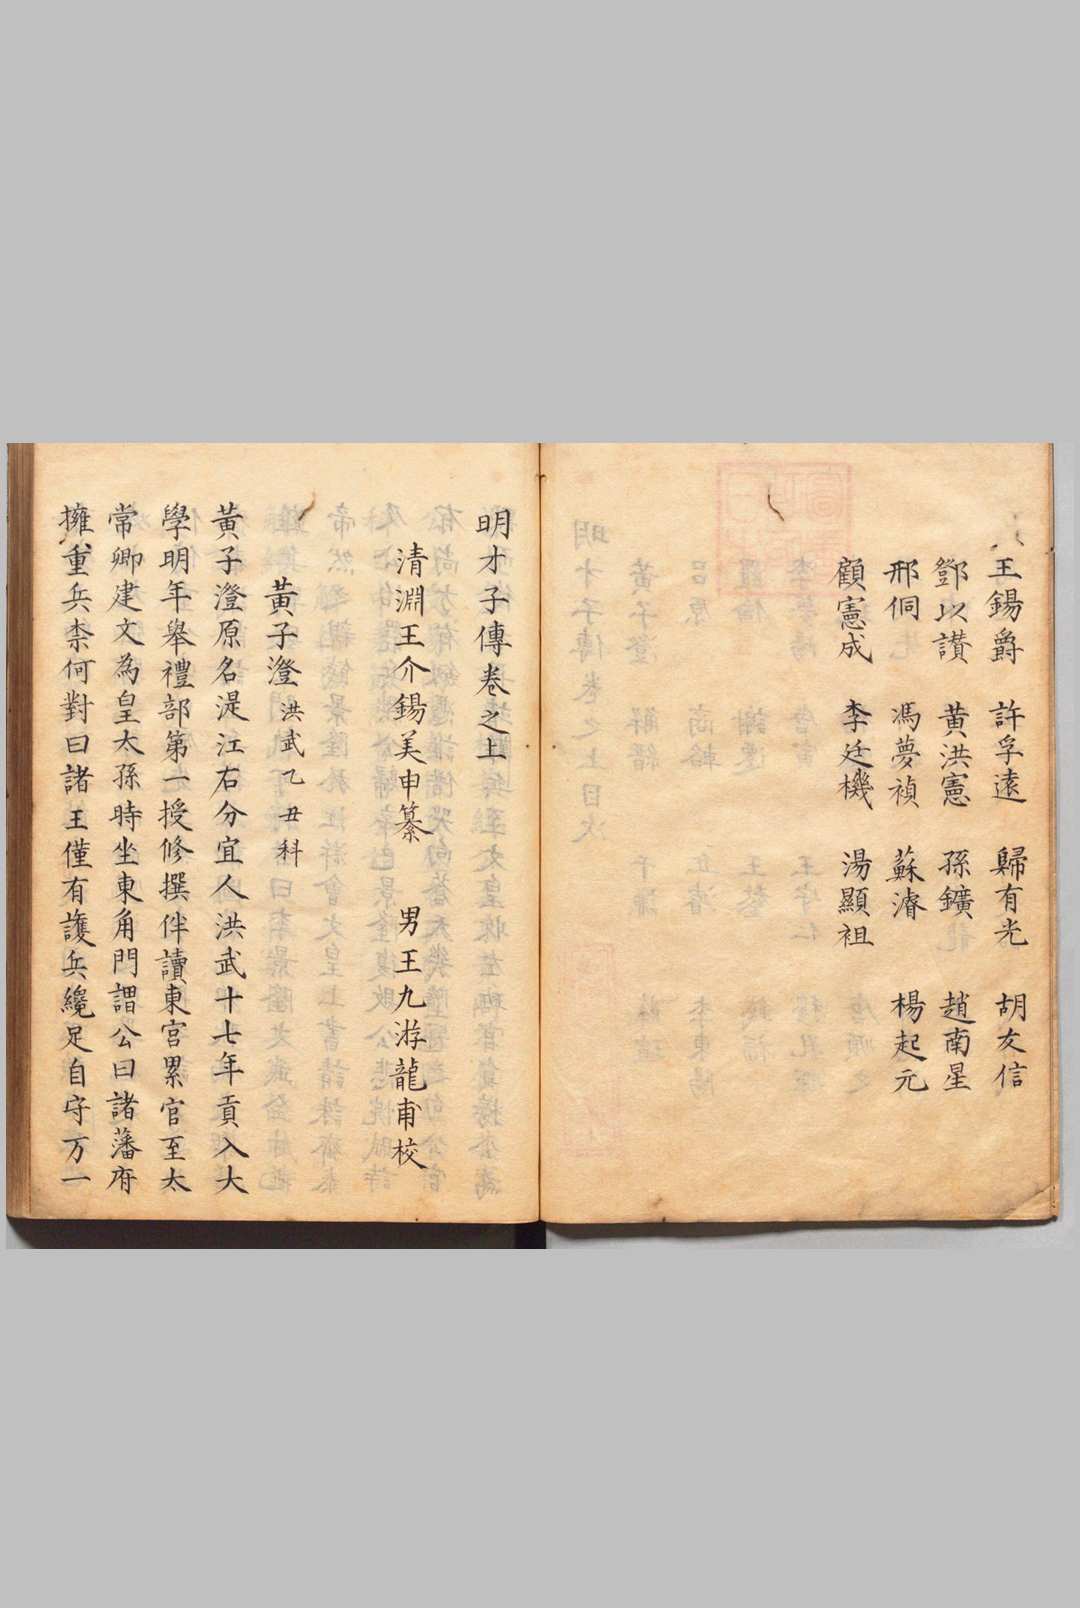 王錫爵 許孚遠 歸有光 胡友信
鄧以讃 黃洪憲 孫鑛 趙南星
邢侗 馮夢禎 蘇濬 楊起元
顧憲成 李廷機 湯顯祖
明才子傳卷之上
清淵王介錫美申纂 男王九游龍甫校
黃子澄 洪武乙丑科
黃子澄原名湜江右分宜人洪武十七年貢入大
學明年舉禮部第一授修撰伴讀東宮累官至太
常卿建文為皇太孫時坐東角門謂公曰諸藩府
擁重兵柰何對曰諸王僅有護兵纔足自守万一